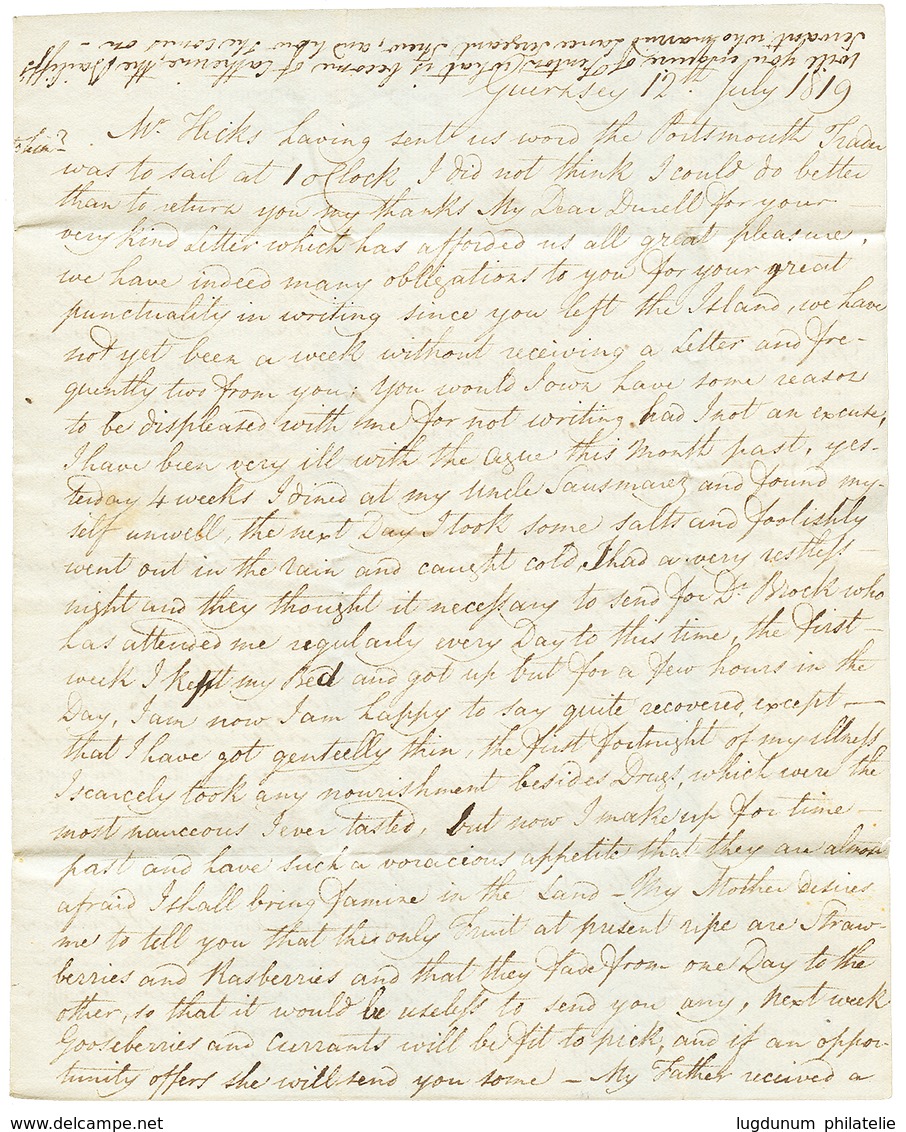 will you enquire of Fenton what is become of Catherine, the Bailiff's
Servant who married Lance Serjeant Shew, and how she comes on –
Guernsey 12th July 1819
Mr Hicks having sent us word the Portsmouth Trader
was to sail at 1 oClock I did not think I could do better
than to return you my thanks My Dear Durell for your
very kind Letter which has afforded us all great pleasure,
we have indeed many obligations to you for your great
punctuality in writing since you left the Island, we have
not yet been a week without receiving a Letter and fre-
quently two from you; You would I own have some reason
to be displeased with me for not writing had I not an excuse,
I have been very ill with the ague this Month past, yes-
terday 4 weeks I dined at my Uncle Sausmarez and found my-
self unwell, the next Day I took some salts and foolishly
went out in the rain and caught cold, I had a very restless
night and they thought it necessary to send for Dr Brock who
has attended me regularly every Day to this time, the first
week I kept my Bed and got up but for a few hours in the
Day, I am now I am happy to say quite recovered, except —
that I have got genteelly thin, the first fortnight of my illness
I scarcely took any nourishment besides Drugs, which were the
most nauceous I ever tasted, but now I make up for time
past and have such a voracious appetite that they are almost
afraid I shall bring famine in the Land – My Mother desires
me to tell you that the only Fruit at present ripe are Straw-
berries and Rasberries and that they fave from one Day to the
other, so that it would be useless to send you any, next week
Gooseberries and Currants will be fit to pick, and if an oppor-
tunity offers she will send you some – My Father received a
lugdunum philatelie
www.delcampe.net